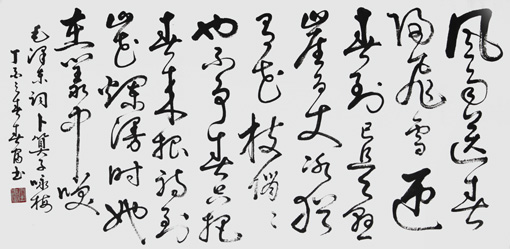 风雨送春
归飞雪迎
春到已是悬
崖百丈冰犹
有花枝俏〻
也不争春只把
春来报待到
山花烂漫时她
在丛中笑
毛泽东词卜算子咏梅
丁亥之春春书